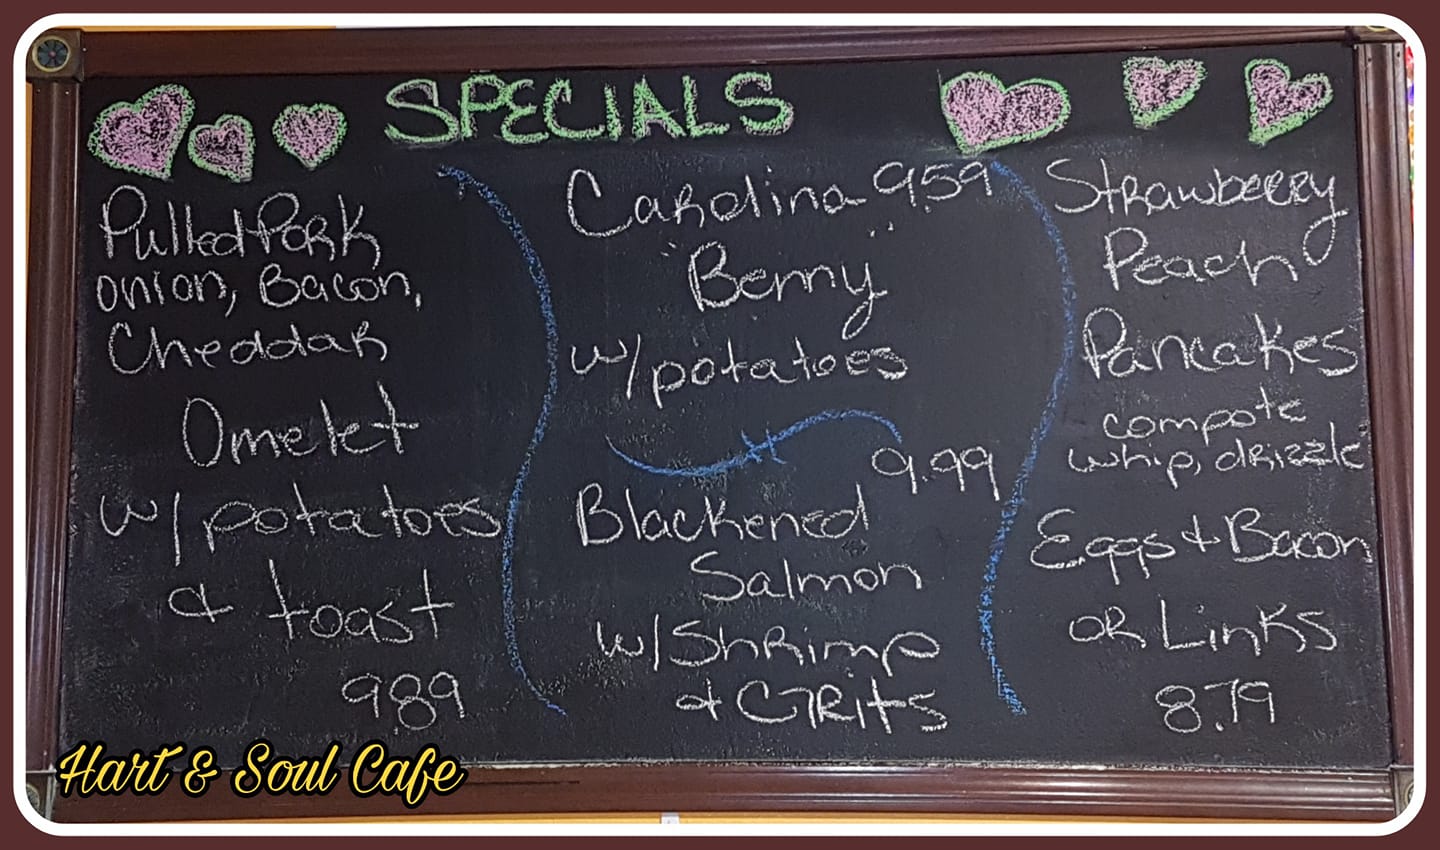 SPECIALS
Pulled Pork
onion, Bacon,
Cheddar
Omelet
w/ potatoes
& toast
989
Carolina 9.59
"Benny"
w/ potatoes
9.99
Blackened
Salmon
w/ Shrimp
& GRits
Strawberry
Peach
Pancakes
compote
whip, drizzle
Eggs & Bacon
OR Links
8.79
Hart & Soul Cafe